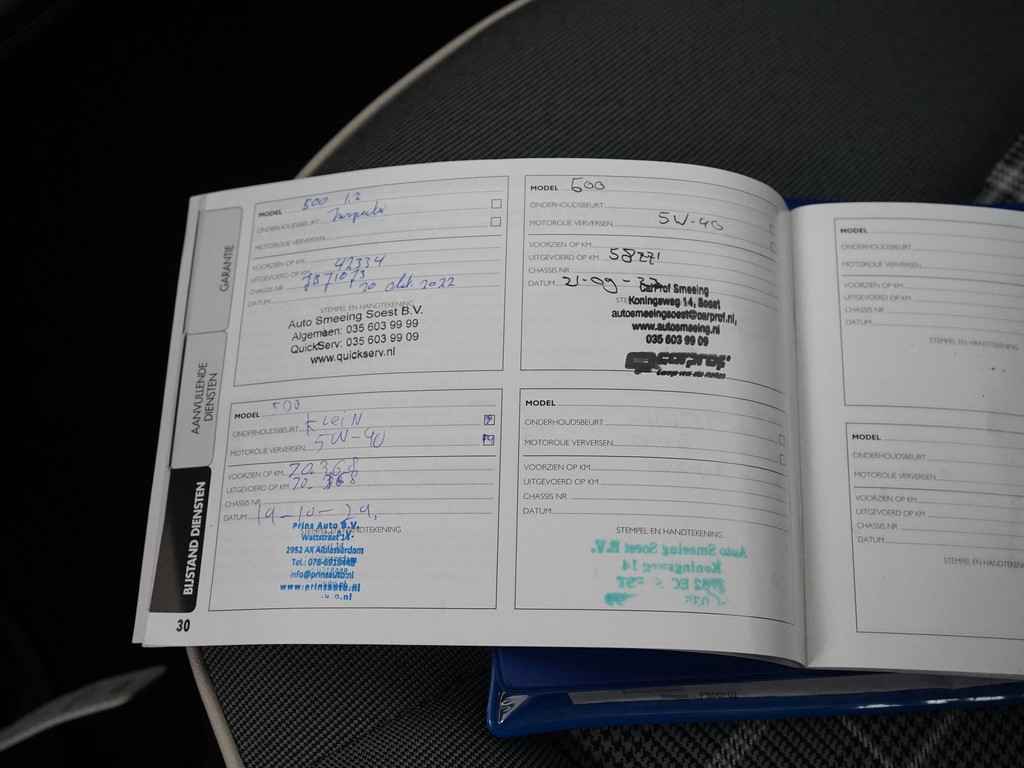 GARANTIE
AANVULLENDE
DIENSTEN
BIJSTAND DIENSTEN
30
MODEL 500 1.2
ONDERHOUDSBEURT
MOTOROLIE VERVERSEN
VOORZIEN OP KM
UITGEVOERD OP KM 42334
CHASSIS NR 7871073
DATUM 20 okt. 2022
STEMPEL EN HANDTEKENING
Auto Smeeing Soest B.V.
Algemeen: 035 603 99 99
QuickServ: 035 603 99 09
www.quickserv.nl
MODEL 500
ONDERHOUDSBEURT
MOTOROLIE VERVERSEN 5W-40
VOORZIEN OP KM
UITGEVOERD OP KM 58771
CHASSIS NR
DATUM 21-09-
CarProf Smeeing
Koningsweg 14, Soest
autosmeeingsoest@carprof.nl,
www.autosmeeing.nl
035 603 99 09
carprof
MODEL 500
ONDERHOUDSBEURT KLEIN
MOTOROLIE VERVERSEN 5W-40
VOORZIEN OP KM 70.368
UITGEVOERD OP KM 70.368
CHASSIS NR
DATUM 19-10-24,
STEMPEL EN HANDTEKENING
Prins Auto B.V.
Wattstraat 14
2952 AX Alblasserdam
Tel.: 078-6918448
info@prinsauto.nl
www.prinsauto.nl
MODEL
ONDERHOUDSBEURT
MOTOROLIE VERVERSEN
VOORZIEN OP KM
UITGEVOERD OP KM
CHASSIS NR
DATUM
STEMPEL EN HANDTEKENING
Auto Smeeing Soest B.V.
Koningsweg 14
MODEL
ONDERHOUDSBEURT
MOTOROLIE VERVERSEN
VOORZIEN OP KM
UITGEVOERD OP KM
CHASSIS NR
DATUM
STEMPEL EN HANDTEKEN
MODEL
ONDERHOUDSBEURT
MOTOROLIE VERVERSEN
VOORZIEN OP KM
UITGEVOERD OP KM
CHASSIS NR
DATUM
STEMPEL EN HANDTEKEN